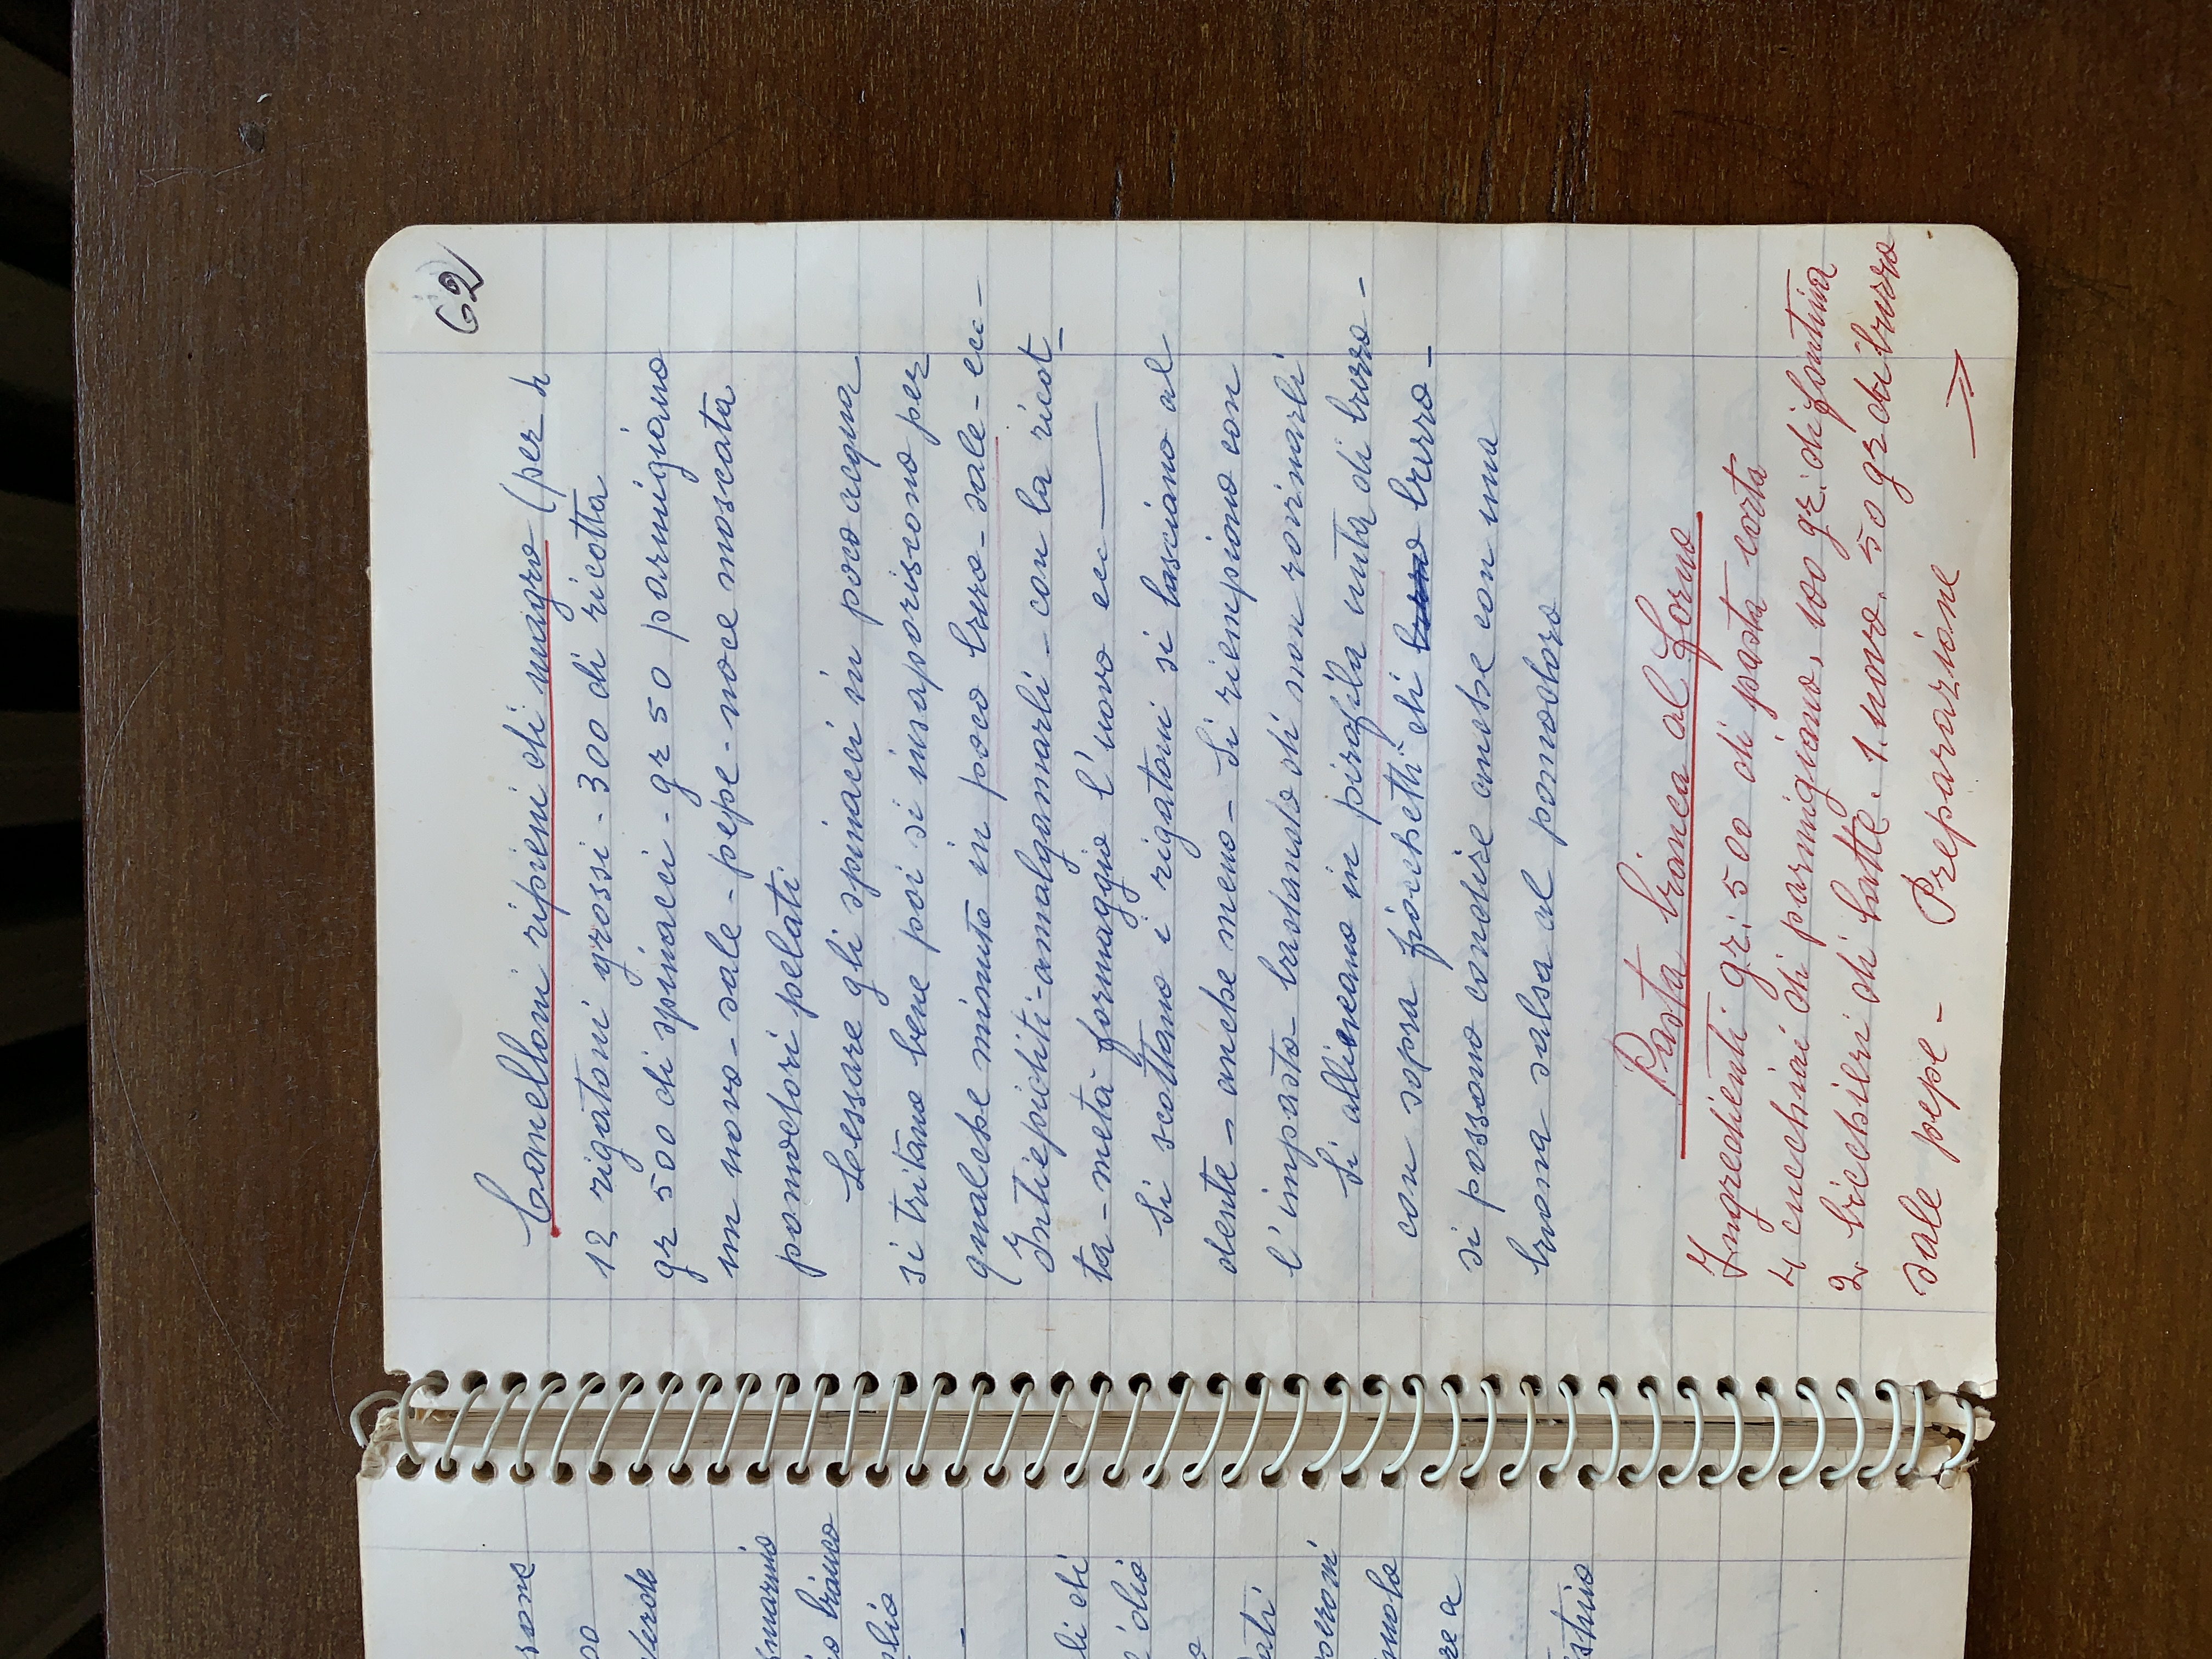 sone
00
verde
smarino
io bianco
glio
-
li di
l'olio
o
lati
peroni
nuola
re a
stino
62
Canelloni ripieni di magro (per 4
12 rigatoni grossi - 300 di ricotta
gr 500 di spinacci - gr 50 parmigiano
un uovo - sale - pepe - noce moscata
pomodori pelati
Lessare gli spinacci in poco acqua
si tritano bene poi si insaporiscono per
qualche minuto in poco burro - sale - ecc -
Intiepiditi - amalgamarli - con la ricot_
ta - metà formaggio l'uovo ecc ——
Si scottano i rigatoni si lasciano al
dente - anche meno - Si riempiono con
l'impasto - badando di non rovinarli
Si allieneano in pirofila unta di burro -
con sopra fiocchetti di burro -
si possono condire anche con una
buona salsa al pomodoro
Pasta bianca al forno
Ingredienti gr: 500 di pasta corta
4 cucchiai di parmigiano, 100 gr: di fontina
2 bicchieri di latte. 1. uovo. 50 gr di burro
sale pepe - Preparazione →